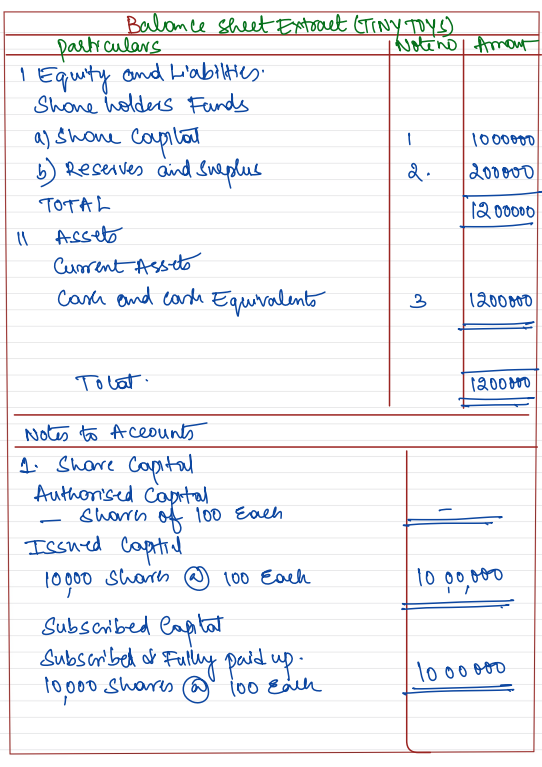 Balance Sheet Extract (TINY TOYS)
Particulars Note no Amount
I Equity and Liabilities.
Share holders Funds
a) Share Capital 1 1000000
b) Reserves and Surplus 2. 200000
TOTAL 1200000
II Assets
Current Assets
Cash and cash Equivalents 3 1200000
Total. 1200000
Notes to Accounts
1. Share Capital
Authorised Capital
— Shares of 100 Each —
Issued Capital
10,000 Shares @ 100 Each 10,00,000
Subscribed Capital
Subscribed & Fully paid up.
10,000 Shares @ 100 Each 1000000